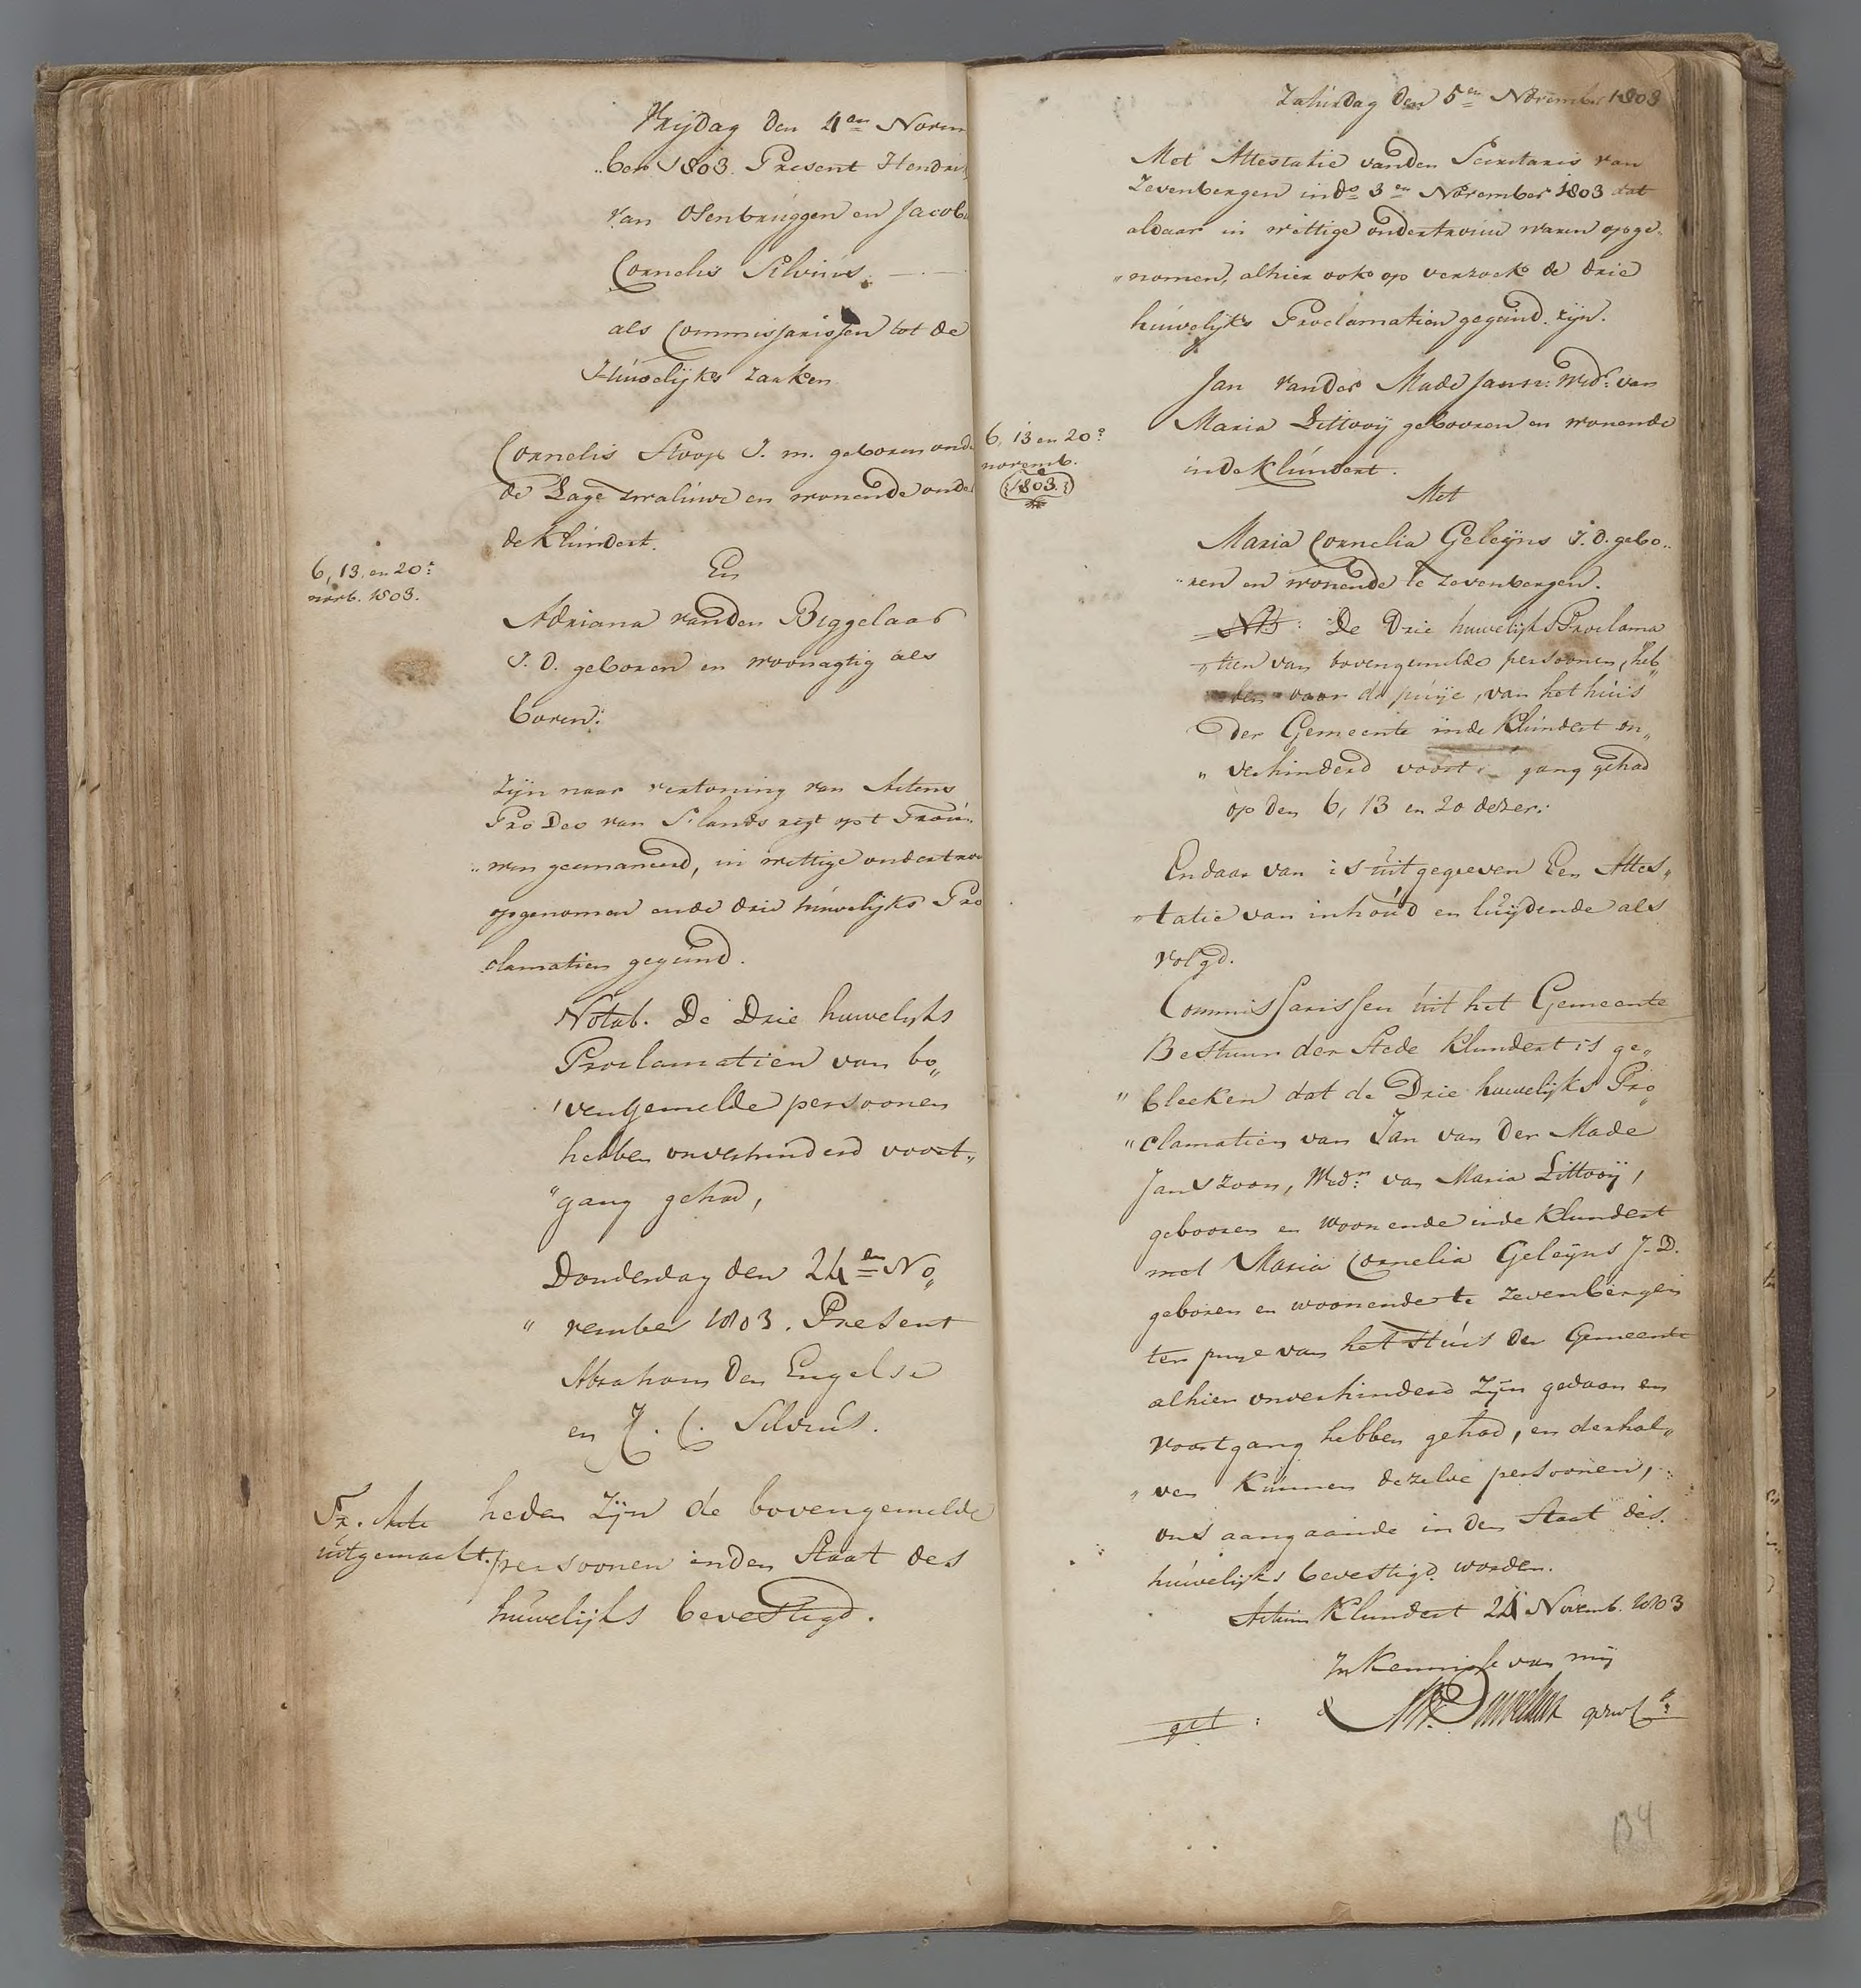 Vrijdag den 4en Novem
„ber 1803. Present Hendri
van Osenbruggen en Jacob
Cornelis Silvius.
als Commissarissen tot de
Huwelijks zaaken
Cornelis Stoop J. m. geboren onde
de Lage zwaluwe en wonende onde
de Klundert.
6, 13. en 20e
novb. 1803.
En
Adriana vanden Beggelaar
J. D. geboren en woonagtig als
boven:
Zijn naar vertoning van Actens
Pro Deo van S'lands regt op t Trou„
„wen geemaneerd, in wettige ondertrou
opgenomen ende drie huwelijks Pro
clamatien gegund.
Notab. De Drie huwelijks
Proclamatien van bo„
„vengemelde persoonen
hebben onverhinderd voort„
„gang gehad,
Donderdag den 24en No„
„vember 1803. Present
Abraham Den Engelse
en J. C. Silvius.
Tr. Acte
uitgemaakt.
heden Zijn de bovengemelde
persoonen inden Staat des
huwelijks bevestigd.
Zaturdag den 5en November 1803
Met Attestatie vanden Secretaris van
Zevenbergen in do 3en November 1803 dat
aldaar in wettige ondertrouw waren opge„
„nomen, alhier ook op verzoek de drie
huwelijks Proclamatien gegund zijn.
Jan vander Made Jansz: Wedr: van
Maria Littooij gebooren en wonende
inde Klundert.
6, 13 en 20e
novemb.
1803.
Met
Maria Cornelia Geleijns J. D. gebo„
„ren en wonende te Zevenbergen.
NB: De Drie huwelijks Proclama
„tien van bovengemelde persoonen, heb„
„ben voor de puije, van het huis
der Gemeente inde Klundert on„
„verhinderd voort gang gehad
op den 6, 13 en 20 dezer:
En daar van is uitgegeven Een Attes„
„tatie van inhoud en luijdende als
volgd.
Commissarissen uit het Gemeente
Bestuur der Stede Klundert is ge„
„bleeken dat de Drie huwelijks Pro„
„clamatien van Jan van Der Made
Janszoon, Wedr: van Maria Littooij,
gebooren en woonende inde Klundert
met Maria Cornelia Geleijns J. D.
geboren en woonende te Zevenbergen
ter puye van het Huis Der Gemeente
alhier onverhinderd Zijn gedaan en
voortgang hebben gehad, en derhal„
„ven Kunnen dezelve persoonen,
ons aangaande in den Staat des
huwelijks bevestigd worden.
Actum Klundert 24 Novemb. 1803
In Kennisse van mij
get:
134